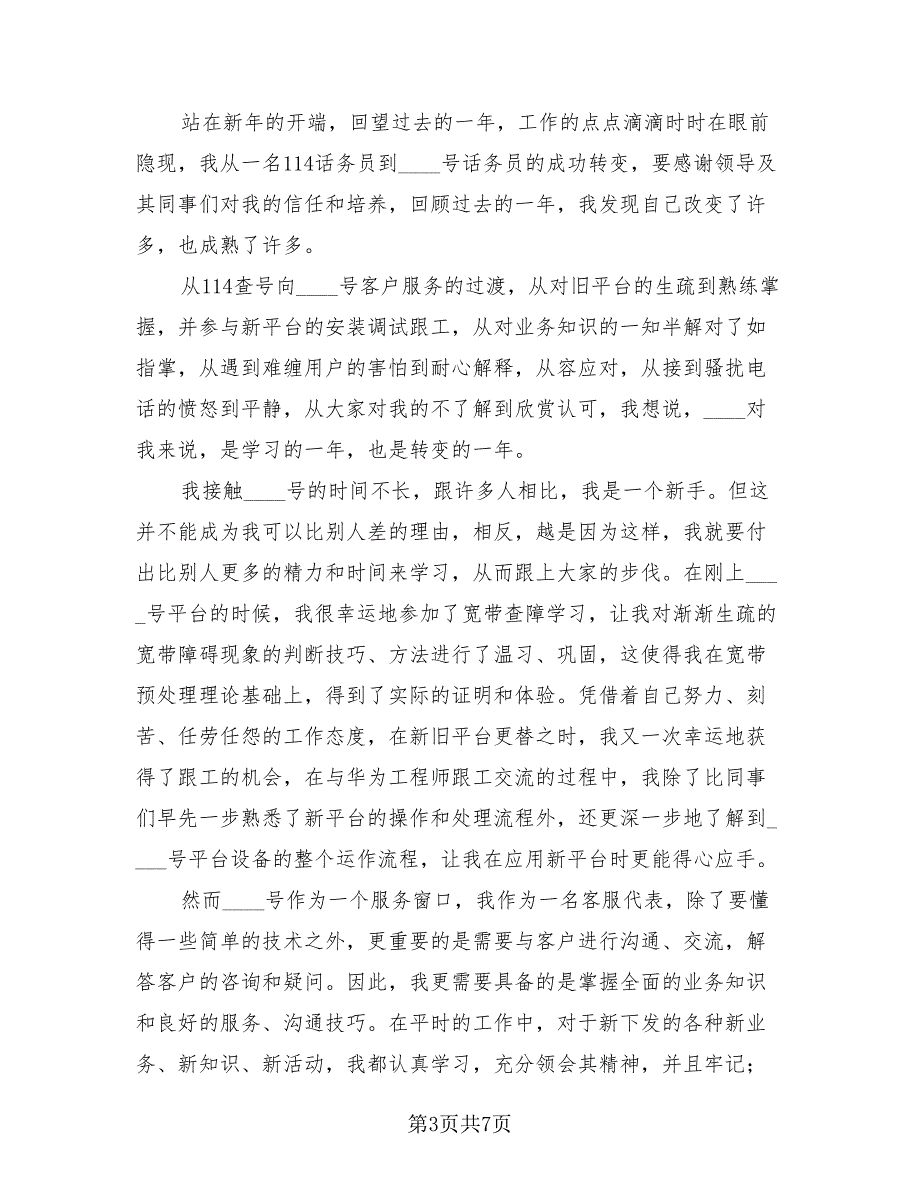 站在新年的开端，回望过去的一年，工作的点点滴滴时时在眼前
隐现，我从一名114话务员到____号话务员的成功转变，要感谢领导及
其同事们对我的信任和培养，回顾过去的一年，我发现自己改变了许
多，也成熟了许多。
从114查号向____号客户服务的过渡，从对旧平台的生疏到熟练掌
握，并参与新平台的安装调试跟工，从对业务知识的一知半解对了如
指掌，从遇到难缠用户的害怕到耐心解释，从容应对，从接到骚扰电
话的愤怒到平静，从大家对我的不了解到欣赏认可，我想说，____对
我来说，是学习的一年，也是转变的一年。
我接触____号的时间不长，跟许多人相比，我是一个新手。但这
并不能成为我可以比别人差的理由，相反，越是因为这样，我就要付
出比别人更多的精力和时间来学习，从而跟上大家的步伐。在刚上___
_号平台的时候，我很幸运地参加了宽带查障学习，让我对渐渐生疏的
宽带障碍现象的判断技巧、方法进行了温习、巩固，这使得我在宽带
预处理理论基础上，得到了实际的证明和体验。凭借着自己努力、刻
苦、任劳任怨的工作态度，在新旧平台更替之时，我又一次幸运地获
得了跟工的机会，在与华为工程师跟工交流的过程中，我除了比同事
们早先一步熟悉了新平台的操作和处理流程外，还更深一步地了解到_
___号平台设备的整个运作流程，让我在应用新平台时更能得心应手。
然而____号作为一个服务窗口，我作为一名客服代表，除了要懂
得一些简单的技术之外，更重要的是需要与客户进行沟通、交流，解
答客户的咨询和疑问。因此，我更需要具备的是掌握全面的业务知识
和良好的服务、沟通技巧。在平时的工作中，对于新下发的各种新业
务、新知识、新活动，我都认真学习，充分领会其精神，并且牢记；
第3页共7页